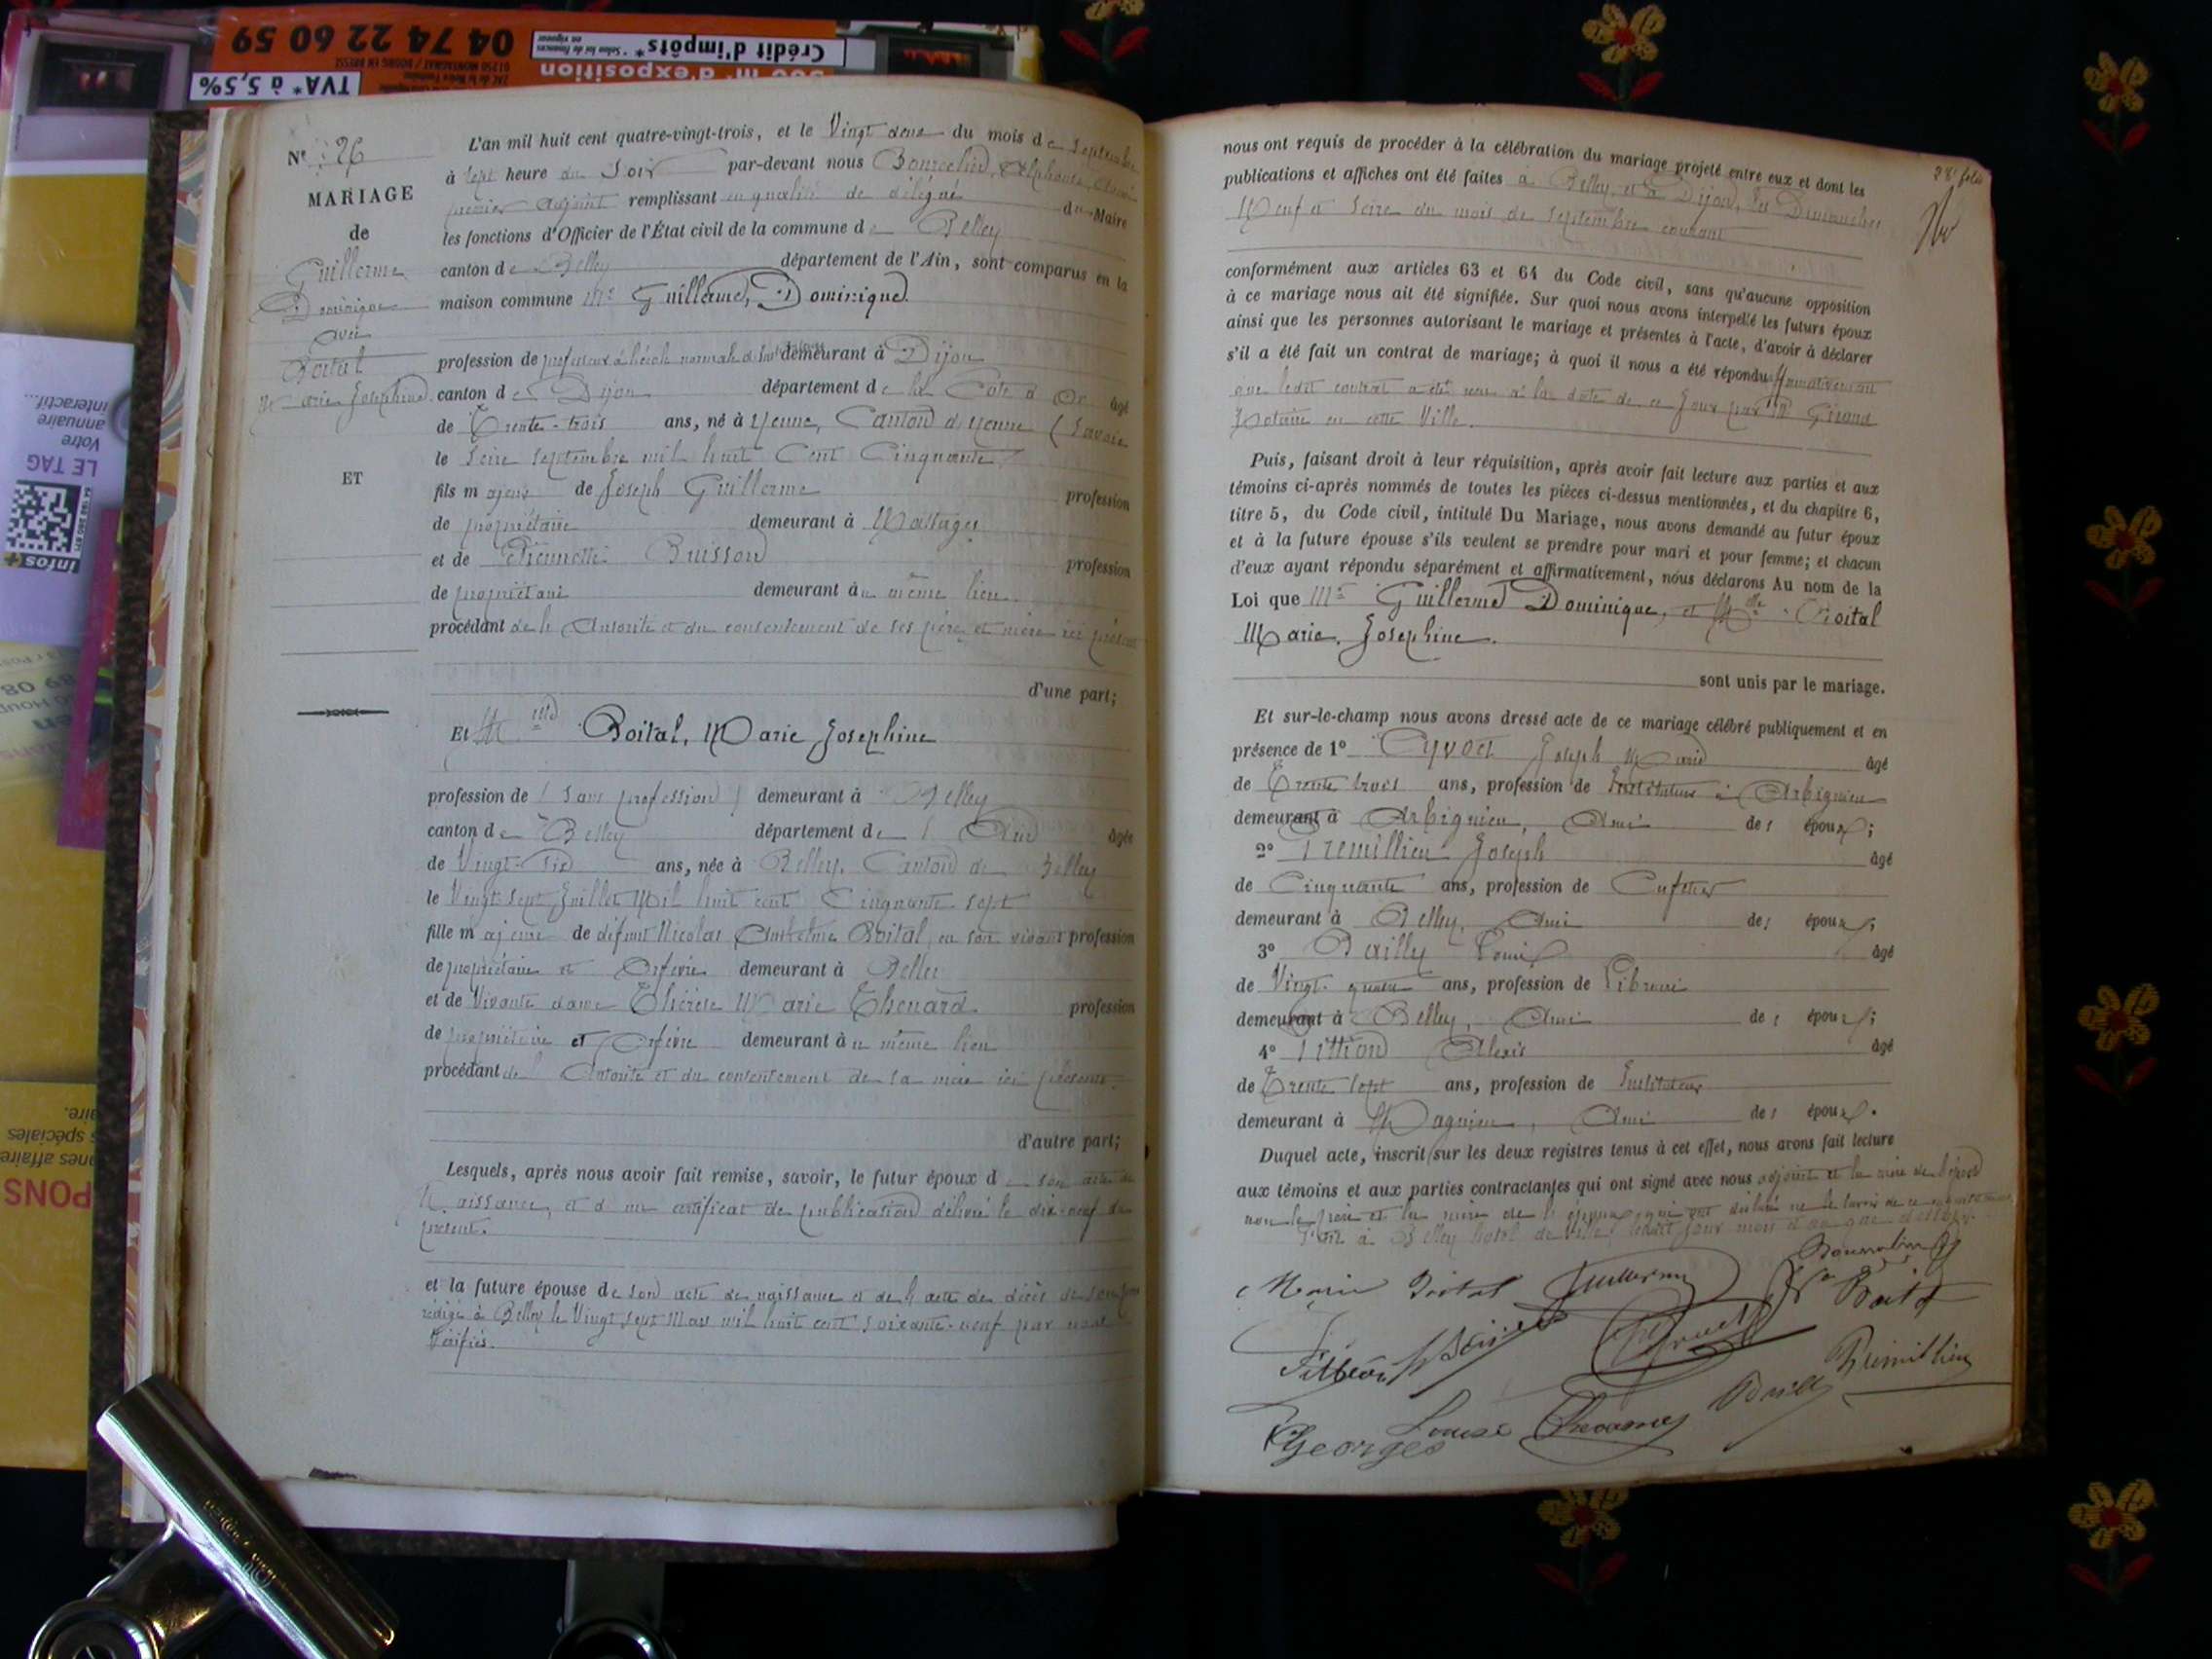 04 74 22 60 59
Crédit d'impôts*
TVA* à 5,5%
interactif...
annuaire
Votre
LE TAG
infos+
N° 26
MARIAGE
de
Guillerme
Dominique
avec
Boital
Marie Josephine
ET
L'an mil huit cent quatre-vingt-trois, et le Vingt deux du mois de Septembre
à Sept heure du Soir par-devant nous
premier adjoint remplissant en qualité de délégué du Maire
les fonctions d'Officier de l'État civil de la commune de Belley
canton de Belley département de l'Ain, sont comparus en la
maison commune Mr Guillerme, Dominique.
profession de professeur à l'école normale demeurant à Dijon
canton de Dijon département de la Côte d'Or âgé
de Trente-trois ans, né à Yenne, Canton d'Yenne (Savoie
le Seize Septembre mil huit Cent Cinquante
fils majeur de Joseph Guillerme profession
de propriétaire demeurant à
et de Etiennette Buisson profession
de propriétaire demeurant au même lieu.
procédant de l'Autorité et du consentement de ses père et mère ici présents
d'une part;
Et Boital, Marie Josephine
profession de (Sans profession) demeurant à Belley
canton de Belley département de l'Ain âgée
de Vingt-Six ans, née à Belley, Canton de Belley
le Vingt Sept Juillet Mil huit cent Cinquante Sept
fille majeure de défunt Nicolas Anthelme Boital, en son vivant profession
de propriétaire et Orfèvre demeurant à Belley
et de Vivante dame Thérèse Marie Thenard profession
de propriétaire et Orfèvre demeurant au même lieu
procédant de l'Autorité et du consentement de sa mère ici présente.
d'autre part;
Lesquels, après nous avoir fait remise, savoir, le futur époux de son acte de
Naissance, et d'un certificat de publication délivré le dix-neuf du
présent.
et la future épouse de son acte de naissance et de l'acte de décès de son père
rédigé à Belley le Vingt sept Mars mil huit cent soixante-neuf par nous
Vérifiés.
28e folio
nous ont requis de procéder à la célébration du mariage projeté entre eux et dont les
publications et affiches ont été faites à Belley et à Dijon, les Dimanches
Neuf et Seize du mois de Septembre courant
conformément aux articles 63 et 64 du Code civil, sans qu'aucune opposition
à ce mariage nous ait été signifiée. Sur quoi nous avons interpellé les futurs époux
ainsi que les personnes autorisant le mariage et présentes à l'acte, d'avoir à déclarer
s'il a été fait un contrat de mariage; à quoi il nous a été répondu affirmativement
que ledit contrat a été reçu à la date de ce jour par Me Girand
Notaire en cette Ville.
Puis, faisant droit à leur réquisition, après avoir fait lecture aux parties et aux
témoins ci-après nommés de toutes les pièces ci-dessus mentionnées, et du chapitre 6,
titre 5, du Code civil, intitulé Du Mariage, nous avons demandé au futur époux
et à la future épouse s'ils veulent se prendre pour mari et pour femme; et chacun
d'eux ayant répondu séparément et affirmativement, nous déclarons Au nom de la
Loi que Mr Guillerme Dominique, et Mlle Boital
Marie Josephine.
sont unis par le mariage.
Et sur-le-champ nous avons dressé acte de ce mariage célébré publiquement et en
présence de 1° Cyvoct Joseph Marie âgé
de Trente trois ans, profession de Instituteur à Arbignieu
demeurant à Arbignieu, Ami des époux;
2° Premillieu Joseph âgé
de Cinquante ans, profession de
demeurant à Belley, Ami des époux;
3° Bailly Louis âgé
de Vingt- ans, profession de Libraire
demeurant à Belley, Ami des époux;
4° Alexis âgé
de Trente Sept ans, profession de Instituteur
demeurant à Magnieu, Ami des époux.
Duquel acte, inscrit sur les deux registres tenus à cet effet, nous avons fait lecture
aux témoins et aux parties contractantes qui ont signé avec nous adjoint et la mère de l'épouse
non le père et la mère de l'époux qui ont déclaré ne le savoir de ce
Fait à Belley hotel de ville, ledit jour mois et an que dessus.
Marie Boital Guillerme
Ve Boital
Premillieu
Louise
Georges